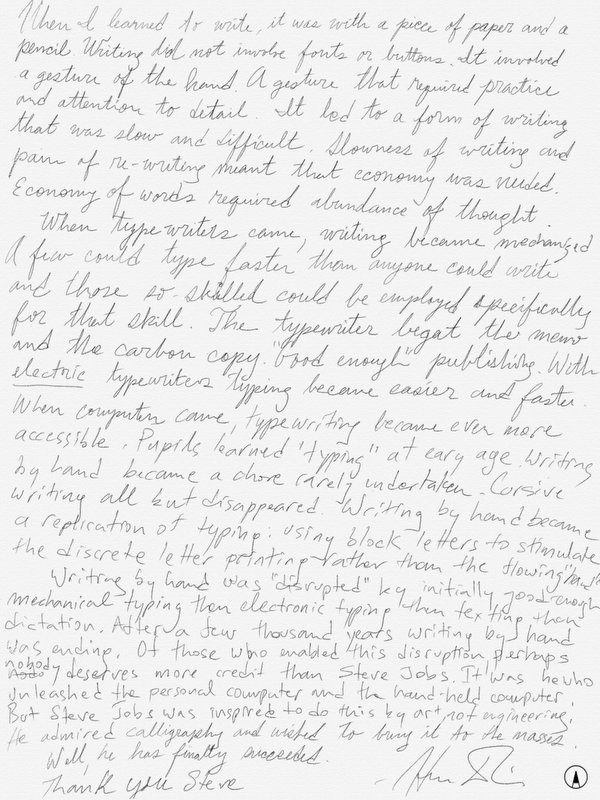 When I learned to write, it was with a piece of paper and a
pencil. Writing did not involve fonts or buttons. It involved
a gesture of the hand. A gesture that required practice
and attention to detail. It led to a form of writing
that was slow and difficult. Slowness of writing and
pain of re-writing meant that economy was needed.
Economy of words required abundance of thought.
When typewriters came, writing became mechanized
A few could type faster than anyone could write
and those so-skilled could be employed specifically
for that skill. The typewriter begat the memo
and the carbon copy. "Good enough" publishing. With
electric typewriters typing became easier and faster.
When computer came, typewriting became even more
accessible. Pupils learned "typing" at eary age. Writing
by hand became a chore rarely undertaken. Corsive
writing all but disappeared. Writing by hand became
a replication of typing: using block letters to stimulate
the discrete letter printing rather than the flowing "hand"
Writing by hand was "disrupted" by initially good enough
mechanical typing then electronic typing then texting then
dictation. After a few thousand years writing by hand
was ending. Of those who enabled this disruption perhaps
nobody deserves more credit than Steve Jobs. It was he who
unleashed the personal computer and the hand-held computer.
But Steve Jobs was inspired to do this by art, not engineering.
He admired calligraphy and wished to bring it to the masses.
Well, he has finally succeeded.
Thank you Steve